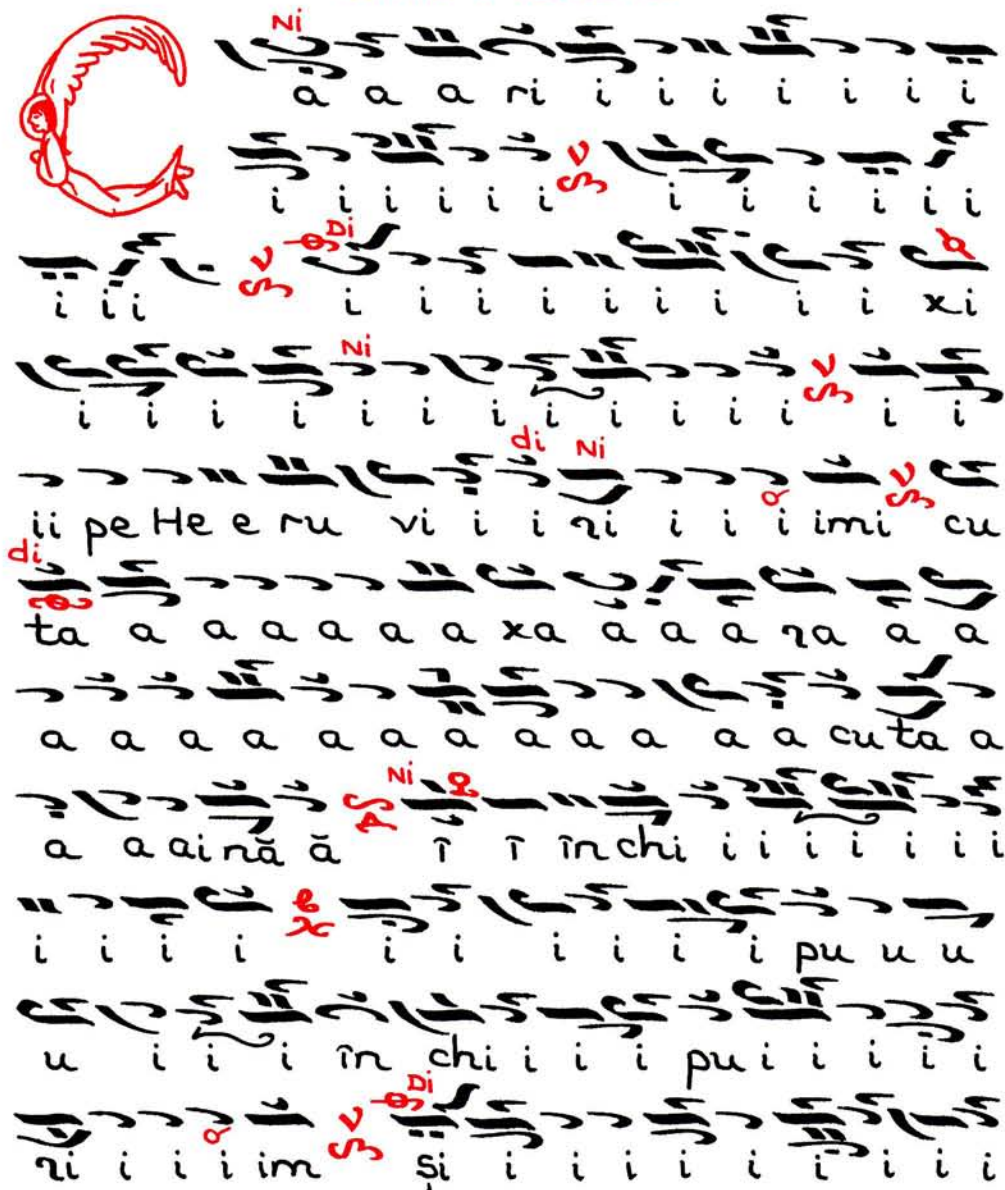 Ni
C a a a ri i i i i i i i
i i i i i i i i i i i i
Di
i i i i i i i i i i i xi
Ni
i i i i i i i i i i i i i i
di Ni
ii pe He e ru vi i i ri i i i imi cu
di
ta a a a a a a xa a a a ra a a
a a a a a a a a a a a a cu ta a
Ni
a a ai nă ă î î în chi i i i i i i
i i i i i i i i i i pu u u
u i i i în chi i i i pu i i i i i
Di
ri i i i im și i i i i i i i i